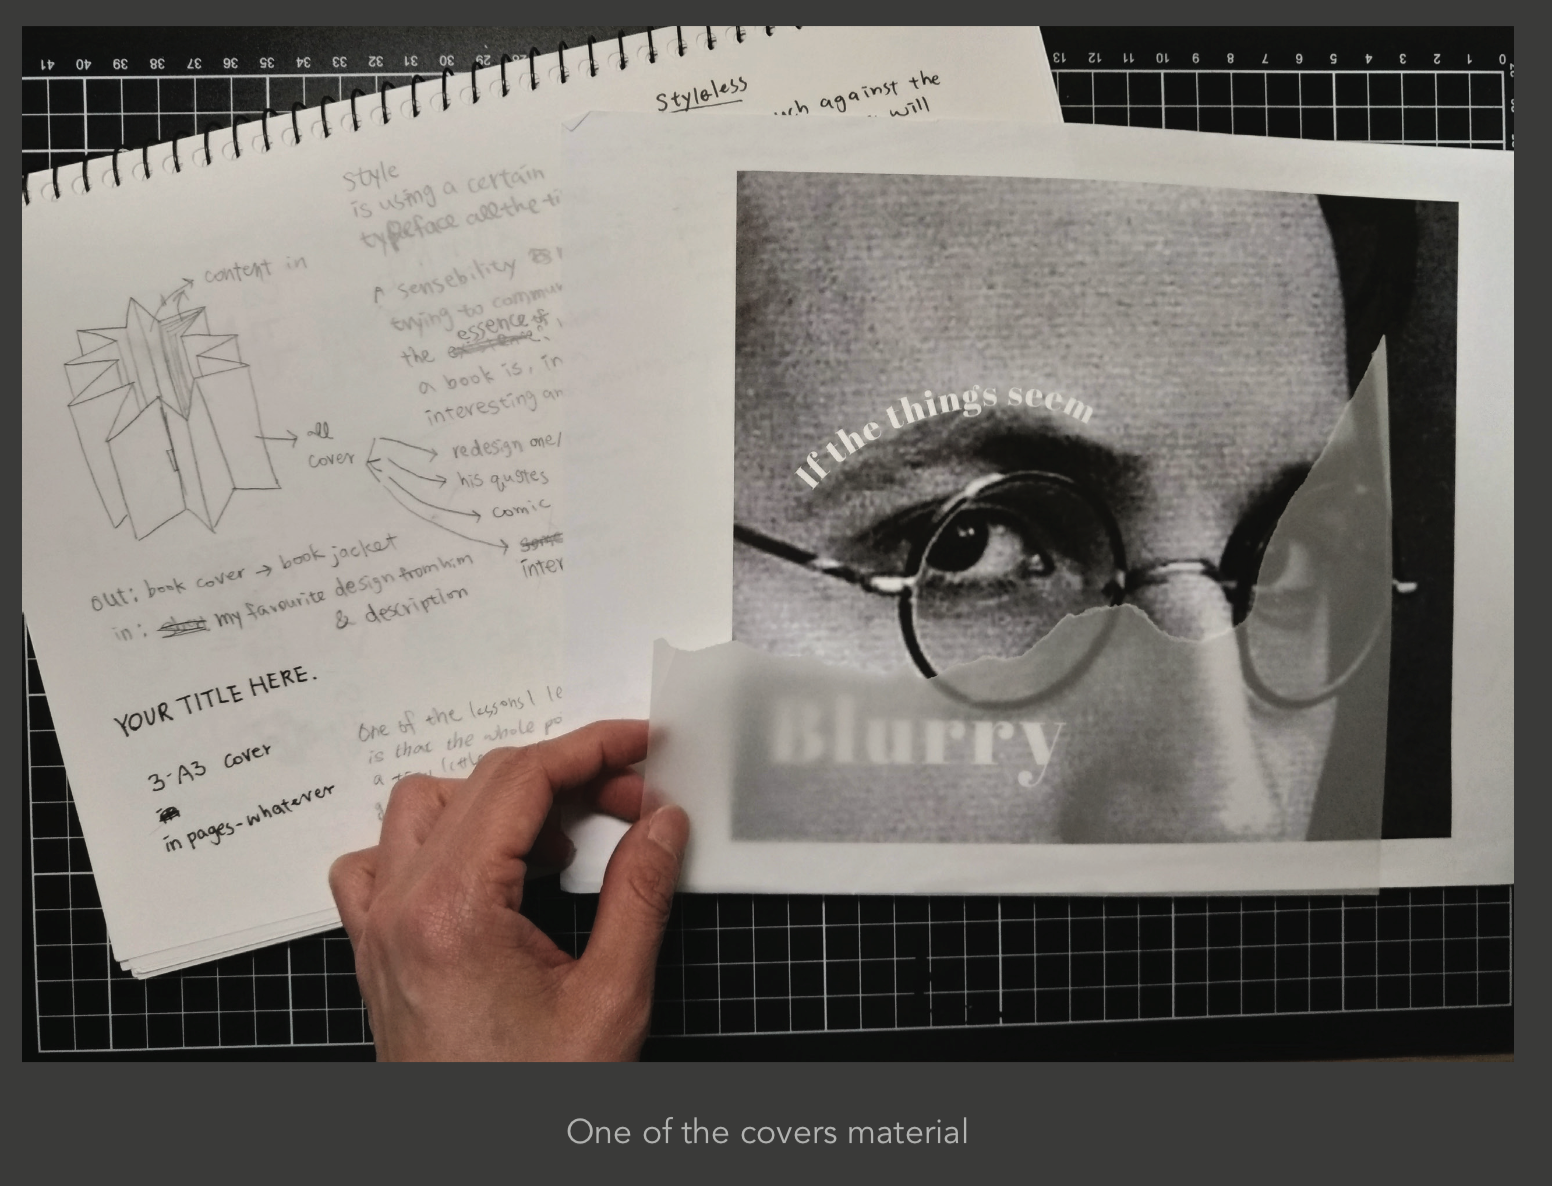 41 40 39 38 37 36 35 34 33 32 31 30 29 28
13 12 11 10 9 8 7 6 5 4 3 2 1 0
Styleless
against the
will
Style
is using a certain
typeface all the ti
A sensebility
trying to commu
essence of
the
a book is, in
interesting an
content in
all
cover
redesign one/
his quotes
comic
inter
out: book cover → book jacket
in: my favourite design from him
& description
YOUR TITLE HERE.
3-A3 cover
in pages-whatever
One of the lessons I le
is that the whole po
a
If the things seem
Blurry
One of the covers material